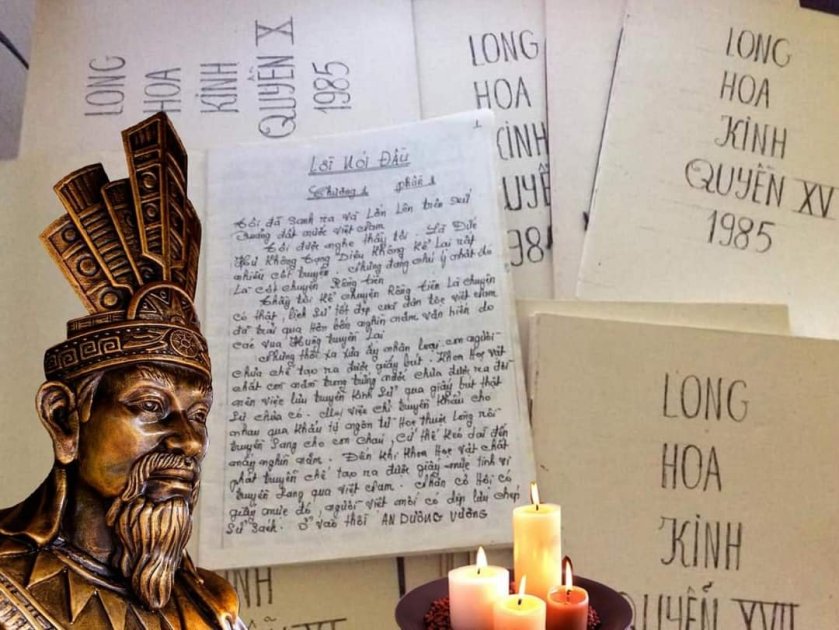 LONG
HOA
KINH
QUYỂN X
1985
LONG
HOA
KINH
QUYỂ
198
LONG
HOA
KINH
QUYỂN XV
1985
1
Lời Nói Đầu
Chương 1 phần 1
Tôi đã sanh ra và Lớn Lên trên
đất nước Việt Nam
Tôi được nghe thầy tôi. Là Đức
Không Kể Lại rất
nhiều cốt truyện. Nhưng đáng chú ý nhất do
Là cốt chuyện Rồng tiên
Thầy tôi kể chuyện Rồng Tiên Là chuyện
có thật, lịch sử tốt đẹp của dân tộc việt Nam
đã trải qua Hơn bốn nghìn năm văn hiến do
các vua Hùng truyền Lại
Những thời xa xưa ấy nhân loại con người
chưa chế tạo ra được giấy bút. Khoa Học vật
chất còn nằm trong trứng nước chưa được ra đời
nên việc lưu truyền Kinh Sử qua giấy bút thật
sự chưa có. Mọi việc chỉ truyền Khẩu cho
nhau qua Khẩu tự ngôn từ Học thuộc Lòng rồi
truyền Sang cho con cháu, cứ thế Kéo dài đến
mấy nghìn năm. Đến Khi Khoa Học vật chất
phát truyền chế tạo ra được giấy mực tinh vi
truyền Sang qua Việt Nam. Nhân cơ Hội có
giấy mực đó, người việt mới có dịp lưu chép
Sử Sách. Ở vào thời AN DƯƠNG VƯƠNG
LONG
HOA
KINH
QUYỂN XVII
INH